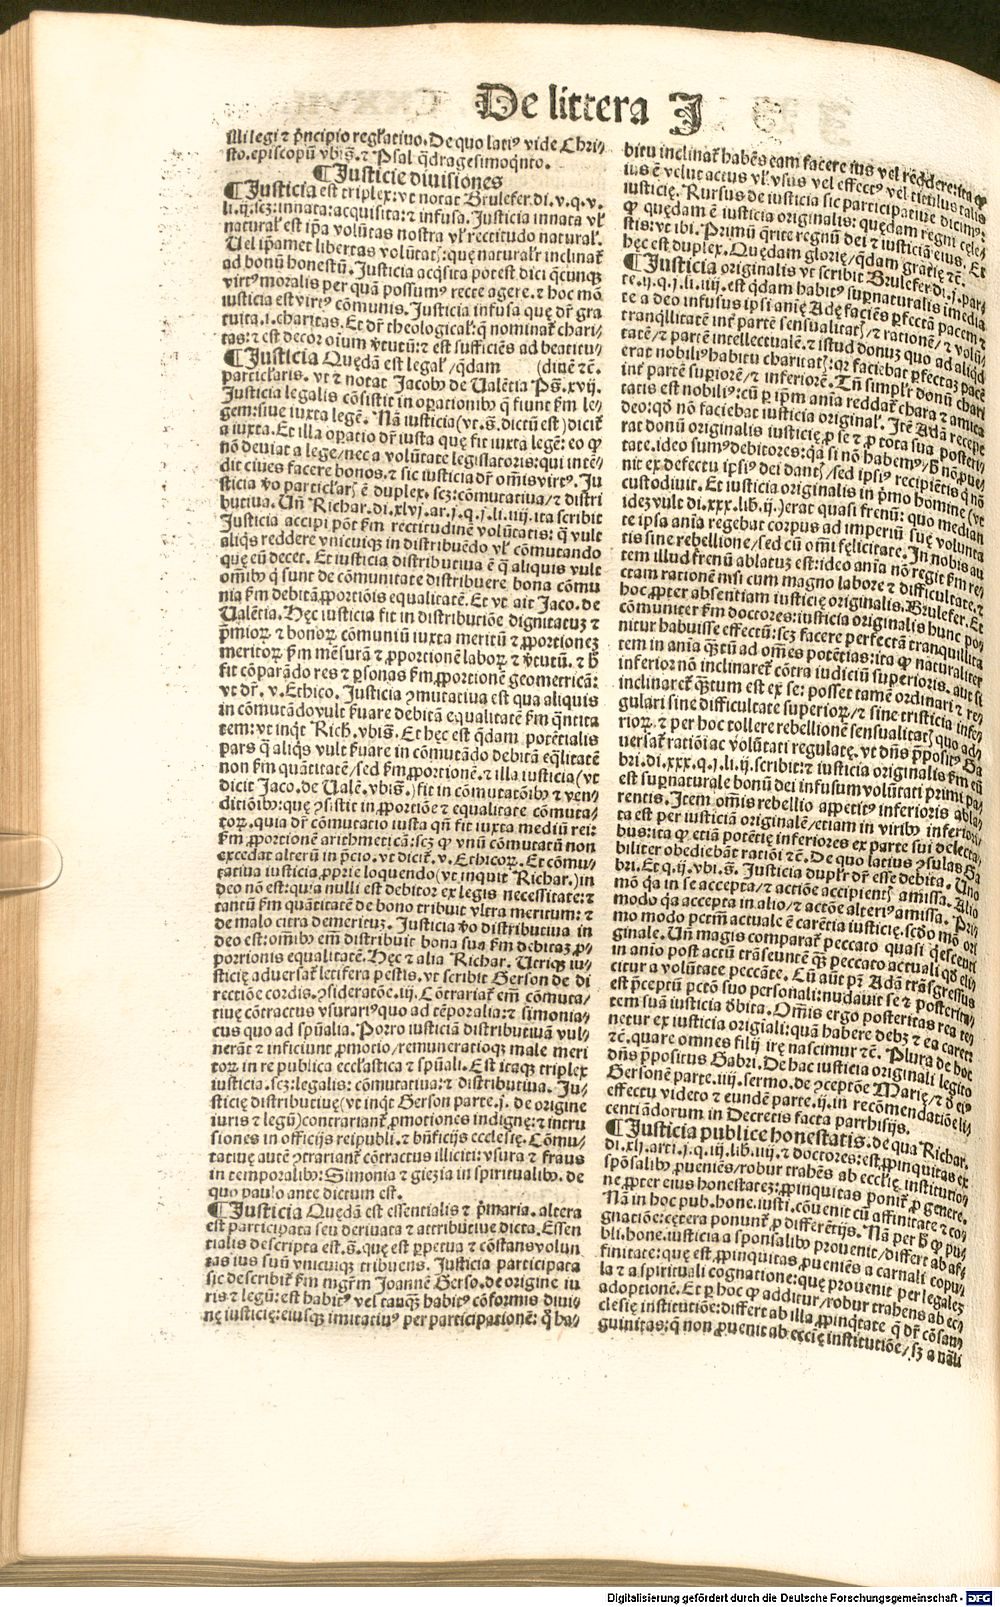 De littera J
Ali legi ⁊ pͥncipio regl'atiuo. De quo latiꝰ vide Chri⸗
sto. episcopū vbiſ. ⁊ Psal q̄dragesimoqͥnto.
¶ Justicie diuisiones
¶ Justicia est triplex: vt notat Brulefer. di. v. q. v.
li. ij. scꝫ: innata: acquisita: ⁊ infusa. Justicia innata vl'
natural' est ip̄a volūtas nostra vl' rectitudo natural'.
Uel ip̄amet libertas volūtat᷒: quę naturalr̄ inclinat᷑
ad bonū honestū. Justicia acq̄sita potest dici q̄cunqꝫ
virtꝰ moralis per quā possumꝰ recte agere. ⁊ hoc mō
iusticia est virtꝰ cōmunis. Justicia infusa quę dr̄ gra
tuita. i. charitas. Et dr̄ theological': q̄ nominat᷑ chari⸗
tas: ⁊ est decor oīum v̄tutū: ⁊ est sufficiēs ad beatitu⸗
¶ Justicia Quędā est legal'/ qdam (dinē ⁊c̄.
particl'aris. vt ⁊ notat Jacobꝰ de Ualētia Pſ. xvij.
Justicia legalis cōsistit in oꝑationibꝰ q̄ fiunt ſm le⸗
gem: siue iuxta legē. Nā iusticia (vt. s. dictū est) dicit᷑
a iuxta. Et illa oꝑatio dr̄ iusta quę fit iuxta legē: eo ꝙ
nō deuiat a lege/ nec a volūtate legislatoris: qui intē⸗
dit ciues facere bonos. ⁊ sic iusticia dr̄ om̄is virtꝰ. Ju
sticia v̄o particl'ar᷒ ē duplex. scꝫ: cōmutatiua/ ⁊ distri
butiua. Un̄ Richar. di. xlvj. ar. j. q. j. li. iiij. ita scribit
Justicia accipi pōt ſm rectitudinē volūtatis: q̄ vult
aliq̄s reddere vnicuiqꝫ in distribuēdo vl' cōmutando
quę eū decet. Et iusticia distributiua ē q̄ aliquis vult
om̄ibꝰ q̄ sunt de cōmunitate distribuere bona cōmu
nia ſm debitā ꝓportiōis equalitatē. Et vt ait Jaco. de
Ualētia. Hęc iusticia fit in distributiōe dignitatuꝫ ⁊
p̄mioꝝ ⁊ bonoꝝ cōmuniū iuxta meritū ⁊ ꝓportioneꝫ
meritoꝝ ſm mēsurā ⁊ ꝓportionē laboꝝ ⁊ v̄tutū. ⁊ h̄
fit cōparādo res ⁊ ꝑsonas ſm ꝓportionē geometricā:
vt dr̄. v. Ethico. Justicia ꝯmutatiua est qua aliquis
in cōmutādo vult ſuare debitā equalitatē ſm q̄ntita
tem: vt inq̄t Rich. vbiſ. Et hęc est q̄dam potētialis
pars q̄ aliq̄s vult ſuare in cōmutādo debitā eq̄litatē
non ſm quātitatē/ sed ſm ꝓportionē. ⁊ illa iusticia (vt
dicit Jaco. de Ualē. vbiſ.) fit in cōmutatōibꝰ ⁊ ven⸗
ditiōibꝰ: quę ꝯsistit in ꝓportiōe ⁊ equalitate cōmuta⸗
toꝝ. quia dr̄ cōmutatio iusta qn̄ fit iuxta mediū rei:
ſm ꝓportionē arithmeticā: scꝫ ꝙ vnū cōmutatū non
excedat alterū in p̄cio. vt dicit᷑. v. Ethicoꝝ. Et cōmu⸗
tatiua iusticia ꝓprie loquendo (vt inquit Richar.) in
deo nō est: quia nulli est debitor ex legis necessitate: ⁊
tantū ſm quātitatē de bono tribuit vltra meritum: ⁊
de malo citra demerituꝫ. Justicia v̄o distributiua in
deo est: om̄ibꝰ em̄ distribuit bona sua ſm debitaꝫ ꝓ⸗
portionis equalitatē. Hęc ⁊ alia Richar. Utriqꝫ iu⸗
sticię aduersat᷑ letifera pestis. vt scribit Gerson de di
rectiōe cordis. ꝯsideratōe. iij. Cōtrariat᷑ em̄ cōmuta⸗
tiuę cōtractus vsurariꝰ quo ad tēporalia: ⁊ simonia⸗
cus quo ad spūalia. Porro iusticiā distributiuā vul⸗
nerāt ⁊ inficiunt ꝓmotio/ remuneratioqꝫ male meri
toꝝ in re publica eccl'astica ⁊ spūali. Est itaqꝫ triplex
iusticia. scꝫ: legalis: cōmutatiua: ⁊ distributiua. Ju⸗
sticię distributiuę (vt inq̄t Gerson parte. j. de origine
iuris ⁊ legū) contrariant᷑ ꝓmotiones indignę: ⁊ intru
siones in officijs reipubli. ⁊ bn̄ficijs ecclesię. Cōmu⸗
tatiuę autē ꝯtrariant᷑ cōtractus illiciti: vsura ⁊ fraus
in temporalibꝰ: Simonia ⁊ giezia in spiritualibꝰ. de
quo paulo ante dictum est.
¶ Justicia Quędā est essentialis ⁊ p̄maria. altera
est participata seu deriuata ⁊ attributiue dicta. Essen
tialis descripta est. s. quę est ꝑpetua ⁊ cōstans volun
tas ius suū vnicuiqꝫ tribuens. Justicia participata
sic describit᷑ ſm mgr̄m Joannē Gerso. de origine iu
ris ⁊ legū: est habitꝰ vel tanqꝫ habitꝰ cōformis diui⸗
nę iusticię: eiusqꝫ imitatiuꝰ per participationē: q̄ ha⸗
bitu inclinat᷑ habēs eam facere ius vel reddere: ita ꝙ
ius ē velut actus vl' vsus vel effectꝰ vel titulus talis
iusticię. Rursus de iusticia sic participatiue dicimꝰ:
ꝙ quędam ē iusticia originalis: quędam regni celes⸗
stis: vt ibi. Primū q̄rite regnū dei ⁊ iusticiā eius. Et
hęc est duplex. Quędam glorię/ q̄dam gratię ⁊c̄.
¶ Justicia originalis vt scribit Brulefer di. j. par⸗
te. ij. q. j. li. iiij. est q̄dam habitꝰ suꝑnaturalis imedia
te a deo infusus ipsi anię Adę faciēs ꝑfectā pacem ⁊
tranq̄llitatē int᷑ partē sensualitat᷒/ ⁊ rationē/ ⁊ volū⸗
tatē/ ⁊ partē intellectualē. ⁊ istud donuꝫ quo ad aliqd
erat nobiliꝰ habitu charitat᷒: q̄r faciebat ꝑfectaꝫ pacē
int᷑ partē superiorē/ ⁊ inferiorē. Tn̄ simplr̄ donū chari
tatis est nobiliꝰ: cū ꝑ ip̄m aīa reddat᷑ chara ⁊ amica
deo: qd̄ nō faciebat iusticia original'. Itē Adā recepe
rat donū originalis iusticię ꝓ se ⁊ ꝓ tota sua posteri⸗
tate. ideo sumꝰ debitores: q̄a si nō habemꝰ/ h̄ nō ꝓue⸗
nit ex defectu ipsiꝰ dei dant᷒/ sed ipsiꝰ recipiētis q̄ nō
custodiuit. Et iusticia originalis in p̄mo homine (vt
ideꝫ vult di. xxx. lib. ij.) erat quasi frenū: quo median
te ipsa anīa regebat corpus ad imperiū suę volunta
tis sine rebellione/ sed cū om̄i fęlicitate. In nobis au
tem illud frenū ablatuꝫ est: ideo anīa nō regit ſm re⸗
ctam rationē nisi cum magno labore ⁊ difficultate. ⁊
hoc ꝓpter absentiam iusticię originalis. Brulefer. Et
cōmuniter ſm doctores: iusticia originalis hunc po⸗
nitur habuisse effectū: scꝫ facere perfectā tranquillita
tem in anīa q̄ꝫtū ad om̄es potētias: ita ꝙ naturaliter
inferior nō inclinaret᷑ cōtra iudiciū superioris. aut si
inclinaret᷑ q̄ꝫtum est ex se: posset tamē ordinari ⁊ re⸗
gulari sine difficultate superioꝝ/ ⁊ sine tristicia infe⸗
rioꝝ. ⁊ per hoc tollere rebellionē sensualitat᷒ quo ad⸗
uersat᷑ ratiōi ac volūtati regulatę. vt dn̄s p̄positꝰ Ga
bri. di. xxx. q. j. li. ij. scribit: ⁊ iusticia originalis ſm eū
est suꝑnaturale bonū dei infusum volūtati primi pa⸗
rentis. Item om̄is rebellio appetitꝰ inferioris abla⸗
ta est per iusticiā originalē/ etiam in viribꝰ inferiori⸗
bus: ita ꝙ etiā potētię inferiores ex parte sui delecta⸗
biliter obediebāt ratiōi ⁊c̄. De quo latius ꝯsulas Ga
bri. Et. q. ij. vbi. s. Justicia duplr̄ dr̄ esse debita. Uno
mō q̄a in se accepta/ ⁊ actiōe accipient᷒ amissa. Alio
modo q̄a accepta in alio/ ⁊ actōe alteriꝰ amissa. Pri⸗
mo modo pctm̄ actuale ē carētia iusticię. scd̄o mō ori
ginale. Un̄ magis comparat᷑ peccato quasi q̄escenti
in anīo post actū trāseuntē q̄ꝫ peccato actuali qd̄ eli⸗
citur a volūtate peccāte. Cū aūt pr̄ Adā trāsgressus
est p̄ceptū pctō suo personali: nudauit se ⁊ posterita⸗
tem suā iusticia d̄bita. Om̄is ergo posteritas rea te⸗
netur ex iusticia origiali: quā habere debꝫ ⁊ ea caret:
⁊c̄. quare omnes filij irę nascimur ⁊c̄. Plura de hoc
dn̄s p̄positus Gabri. De hac iusticia originali legito
Gersonē parte. iiij. sermo. de ꝯceptōe Marię/ ⁊ d̄ eiꝰ
effectu videto ⁊ eundē parte. ij. in recōmendatiōe li⸗
centiādorum in Decretis facta parrhisijs.
¶ Justicia publice honestatis. de qua Richar.
di. xlj. arti. j. q. iij. lib. iiij. ⁊ doctores: est ꝓpinquitas ex
spōsalibꝰ ꝓueniēs/ robur trahēs ab ecclīę institution
ne ꝓpter eius honestateꝫ: ꝓpinquitas ponit᷑ ꝓ genere.
Nā in hoc pub. hone. iusti. cōuenit cū affinitate ⁊ co⸗
gnatiōe: cętera ponunt᷑ ꝓ differētijs. Nā per h̄ ꝙ pu⸗
bli. hone. iusticia a sponsalibꝰ prouenit/ differt ab af⸗
finitate: que est ꝓpinquitas ꝓueniēs a carnali copu⸗
la ⁊ a spirituali cognatione: quę prouenit per legaleꝫ
adoptionē. Et ꝑ hoc ꝙ additur/ robur trahens ab ec⸗
clesię institutiōe: differt ab illa ꝓpinq̄tate q̄ dr̄ cōsan⸗
guinitas: q̄ non ꝓuenit ab ecc̄ię institutiōe/ sꝫ a nāli
Digitalisierung gefördert durch die Deutsche Forschungsgemeinschaft - DFG